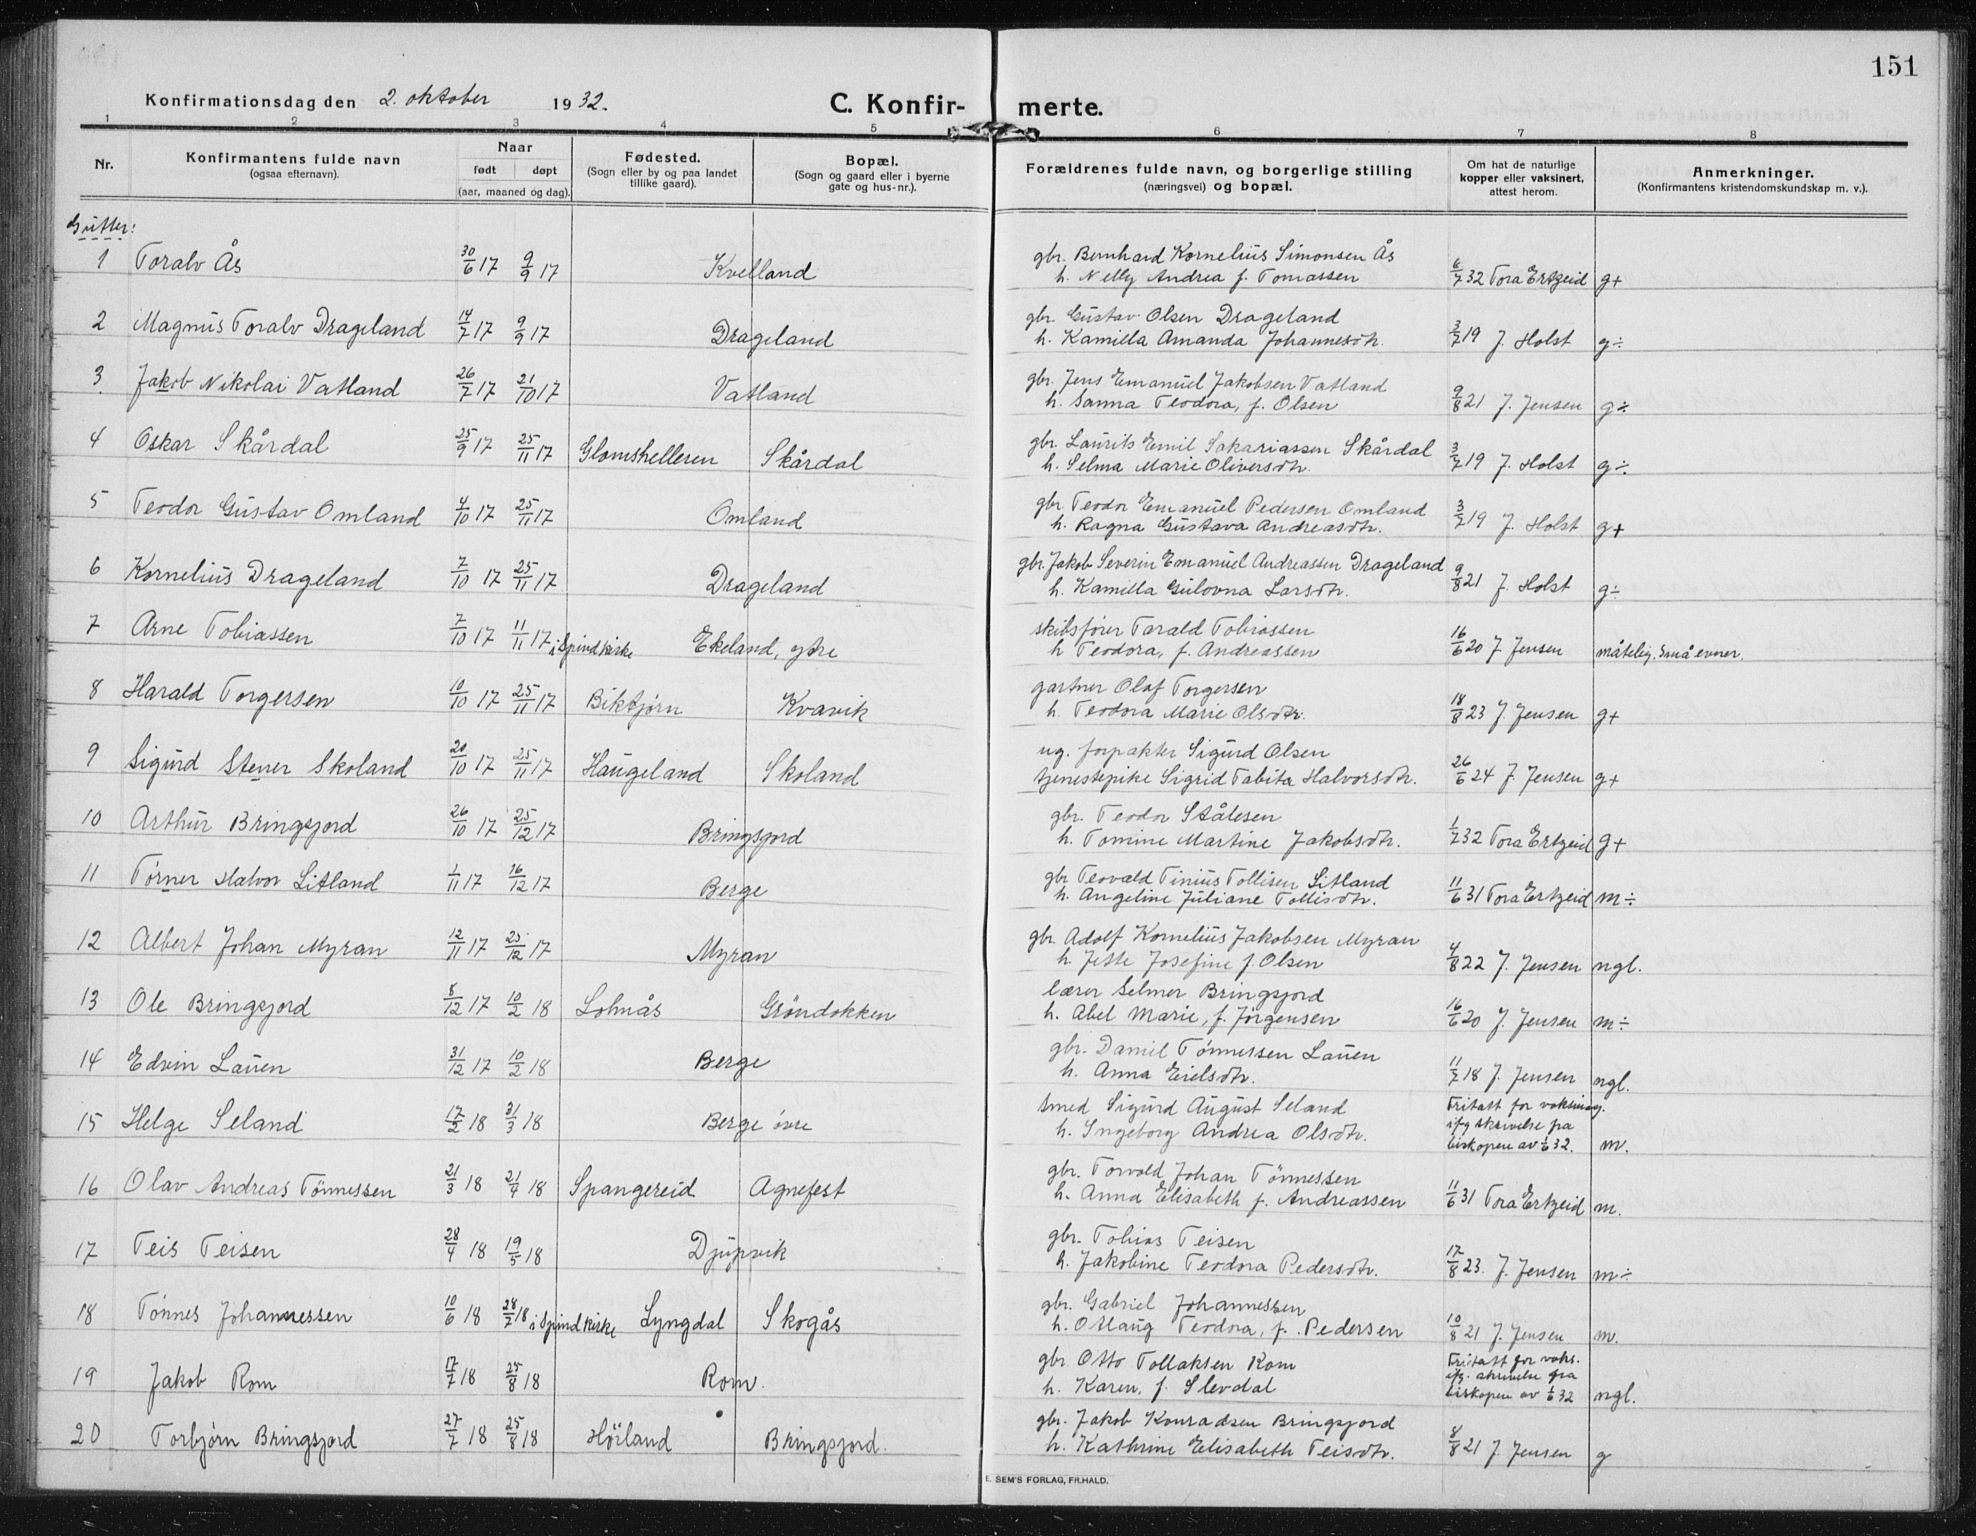 151
Konfirmationsdag den 2. oktober 1932. C. Konfir- merte.
1 2 3 4 5 6 7 8
Nr.
Konfirmantens fulde navn
(ogsaa efternavn).
Naar
født døpt
(aar, maaned og dag).
Fødested.
(Sogn eller by og paa landet
tillike gaard).
Bopæl.
(Sogn og gaard eller i byerne
gate og hus-nr.).
Forældrenes fulde navn, og borgerlige stilling
(næringsvei) og bopæl.
Om hat de naturlige
kopper eller vaksinert,
attest herom.
Anmerkninger.
(Konfirmantens kristendomskundskap m. v.).
Gutter:
1 Toralv Ås 30/6 17 9/9 17 Kvelland
gbr. Bernhard Kornelius Simonsen Ås
h. Nelly Andrea f. Tomassen 6/7 32 Tora Ertzeid g+
2 Magnus Toralv Drageland 14/7 17 9/9 17 Drageland
gbr. Gustav Olsen Drageland
h. Kamilla Amanda Johannesdtr. 3/7 19 J. Holst g÷
3. Jakob Nikolai Vatland 26/7 17 21/10 17 Vatland
gbr. Jens Emanuel Jakobsen Vatland
h. Sanna Teodora, f. Olsen 9/8 21 J. Jensen g÷
4 Oskar Skårdal 25/9 17 25/11 17 Glomshelleren Skårdal
gbr. Laurits Emil Sakariassen Skårdal
h. Selma Marie Oliversdtr. 3/7 19 J. Holst g÷
5 Teodor Gustav Omland 4/10 17 25/11 17 Omland
gbr Teodor Emanuel Pedersen Omland
h. Ragna Gustava Andreasdtr. 3/7 19 J. Holst g+
6 Kornelius Drageland 7/10 17 25/11 17 Drageland
gbr. Jakob Severin Emanuel Andreassen Drageland
h. Kamilla Gulovna Larsdtr. 9/8 21 J. Holst g÷
7 Arne Tobiassen 7/10 17 11/11 17 i Spind kirke Ekeland, ytre
skibsfører Tarald Tobiassen
h Teodora, f. Andreassen 16/6 20 J Jensen måtelig. Små evner.
8 Harald Torgersen 10/10 17 25/11 17 Biktjørn Kvavik
gartner Olaf Torgersen
h. Teodora Marie Olsdtr. 18/8 23 J. Jensen g+
9 Sigurd Stener Skoland 20/10 17 25/11 17 Haugeland Skoland
ug. forpakter Sigurd Olsen
tjenestepike Sigrid Tabita Halvorsdtr. 26/6 24 J. Jensen g+
10 Arthur Bringsjord 26/10 17 25/12 17 Bringsjord
gbr. Teodor Stålesen
h. Tomine Martine Jakobsdtr. 1/7 32 Tora Ertzeid g+
11 Tørner Halvor Litland 1/11 17 16/12 17 Berge
gbr Teovald Tinius Tollisen Litland
h. Angeline Juliane Tollisdtr. 11/6 31 Tora Ertzeid m÷
12 Albert Johan Myran 12/11 17 25/12 17 Myran
gbr. Adolf Kornelius Jakobsen Myran
h. Jette Josefine f. Olsen 4/8 22 J. Jensen ngl.
13 Ole Bringsjord 8/12 17 10/2 18 Lohnås Grøndokken
lærer Selmer Bringsjord
h. Abel Marie, f. Jørgensen 16/6 20 J. Jensen m÷
14 Edvin Lauen 31/12 17 10/2 18 Berge
gbr. Daniel Tønnessen Lauen
h. Anna Eielsdtr. 11/7 18 J. Jensen ngl.
15 Helge Seland 17/2 18 31/3 18 Berge øvre
smed Sigurd August Seland
h. Ingeborg Andrea Olsdtr.
Fritatt for vaksinasj.
ifg skrivelse fra
biskopen av 1/6 32. m.
16 Olav Andreas Tönnessen 21/3 18 21/4 18 Spangereid Agnefest
gbr. Torvald Johan Tönnessen
h. Anna Elisabeth f. Andreassen 11/6 31 Tora Ertzeid m.
17 Teis Teisen 28/4 18 19/5 18 Djupvik
gbr. Tobias Teisen
h. Jakobine Teodora Pedersdtr. 17/8 23. J. Jensen m÷
18 Tönnes Johannessen 10/6 18 28/7 18 i Spind kirke Lyngdal Skogås
gbr. Gabriel Johannessen
h. Ottaug Teodora, f. Pedersen 10/8 21 J. Jensen m.
19 Jakob Rom 17/7 18 25/8 18 Rom.
gbr Otto Tollaksen Rom
h. Karen, f. Slevdal
Fritatt for vaks.
ifg. skrivelse fra
biskopen av 1/6 32 ngl.
20 Torbjørn Bringsjord 27/7 18 25/8 18 Hörland Bringsjord.
gbr. Jakob Konradsen Bringsjord
h. Kathrine Elisabeth Teisdtr. 8/8 21 J. Jensen g
E. SEM'S FORLAG, FR.HALD.